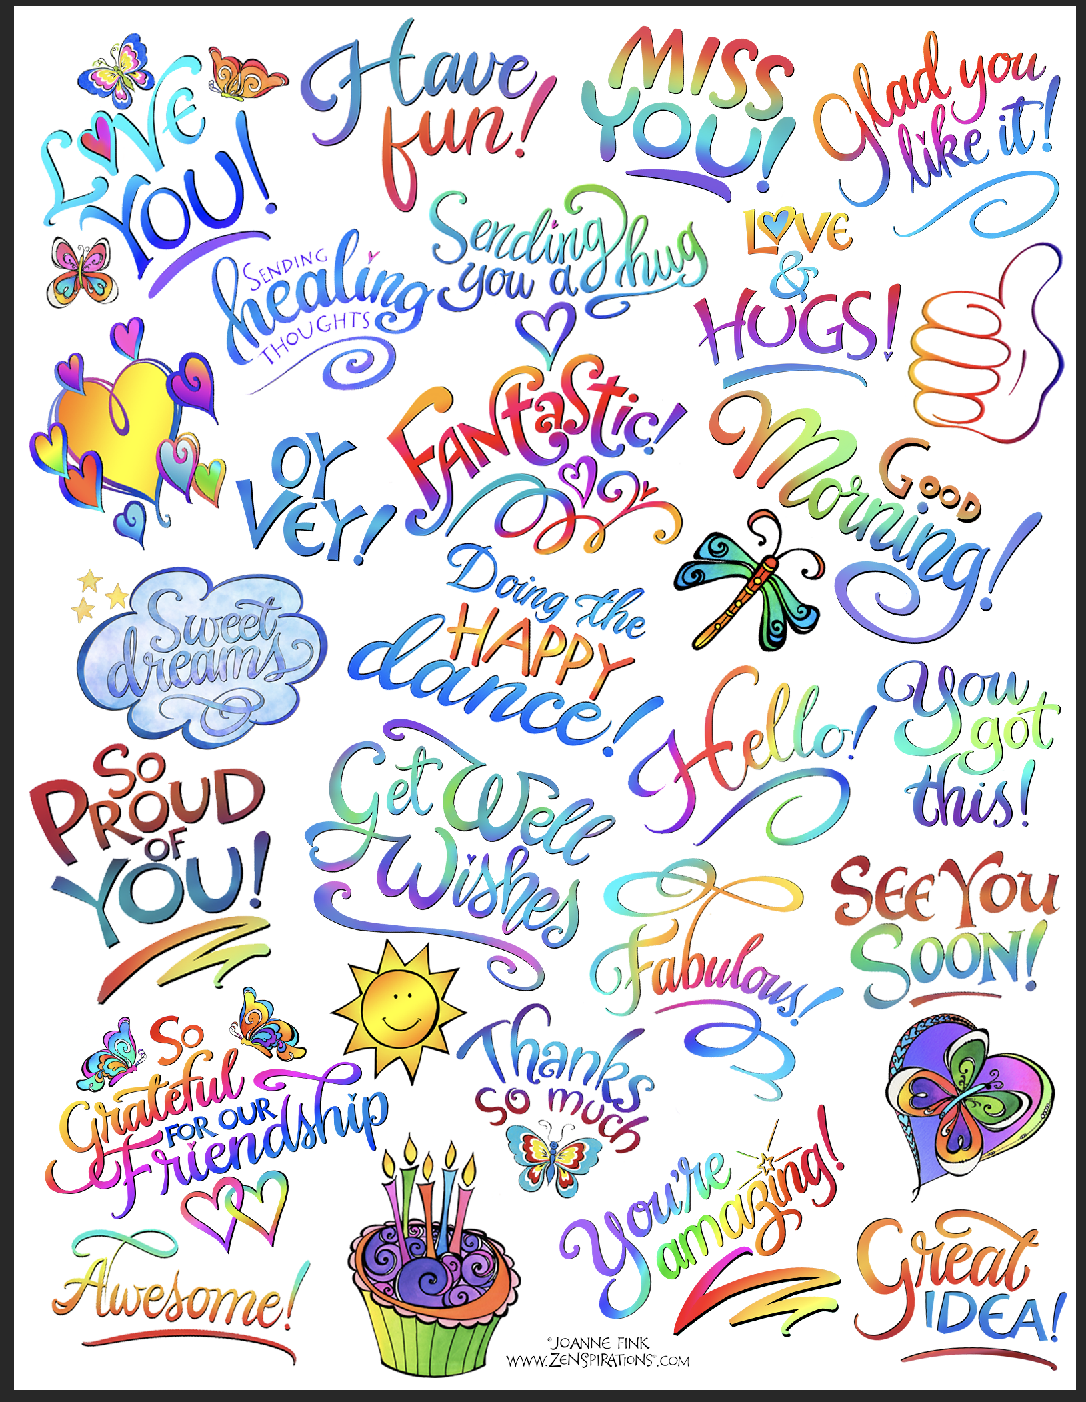 LOVE
YOU!
Have
fun!
MISS
YOU!
Glad you
like it!
SENDING
healing
THOUGHTS
Sending
you a hug
LOVE
&
HUGS!
OY
VEY!
FANtastic!
GOOD
Morning!
Sweet
dreams
Doing the
HAPPY
dance!
Hello!
You
got
this!
So
PROUD
OF
YOU!
Get Well
Wishes
Fabulous!
SEE YOU
SOON!
So
Grateful
FOR OUR
Friendship
Thanks
so much
You're
amazing!
Awesome!
Great
IDEA!
©JOANNE FINK
WWW.ZENSPIRATIONS®.COM